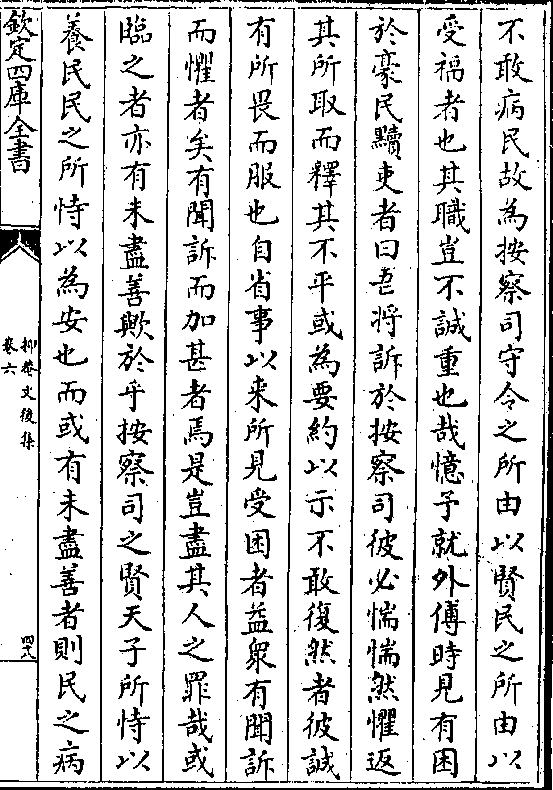 不敢病民故為按察司守令之所由以賢民之所由以
受福者也其職豈不誠重也哉憶予就外傅時見有困
於豪民黷吏者曰吾將訴於按察司彼必惴惴然懼返
其所取而釋其不平或為要約以示不敢復然者彼誠
有所畏而服也自省事以来所見受困者益衆有聞訴
而懼者矣有聞訴而加甚者焉是豈盡其人之罪哉或
臨之者亦有未盡善歟於乎按察司之賢天子所恃以
養民民之所恃以為安也而或有未盡善者則民之病
欽定四庫全書
抑菴文後集
卷六
四八